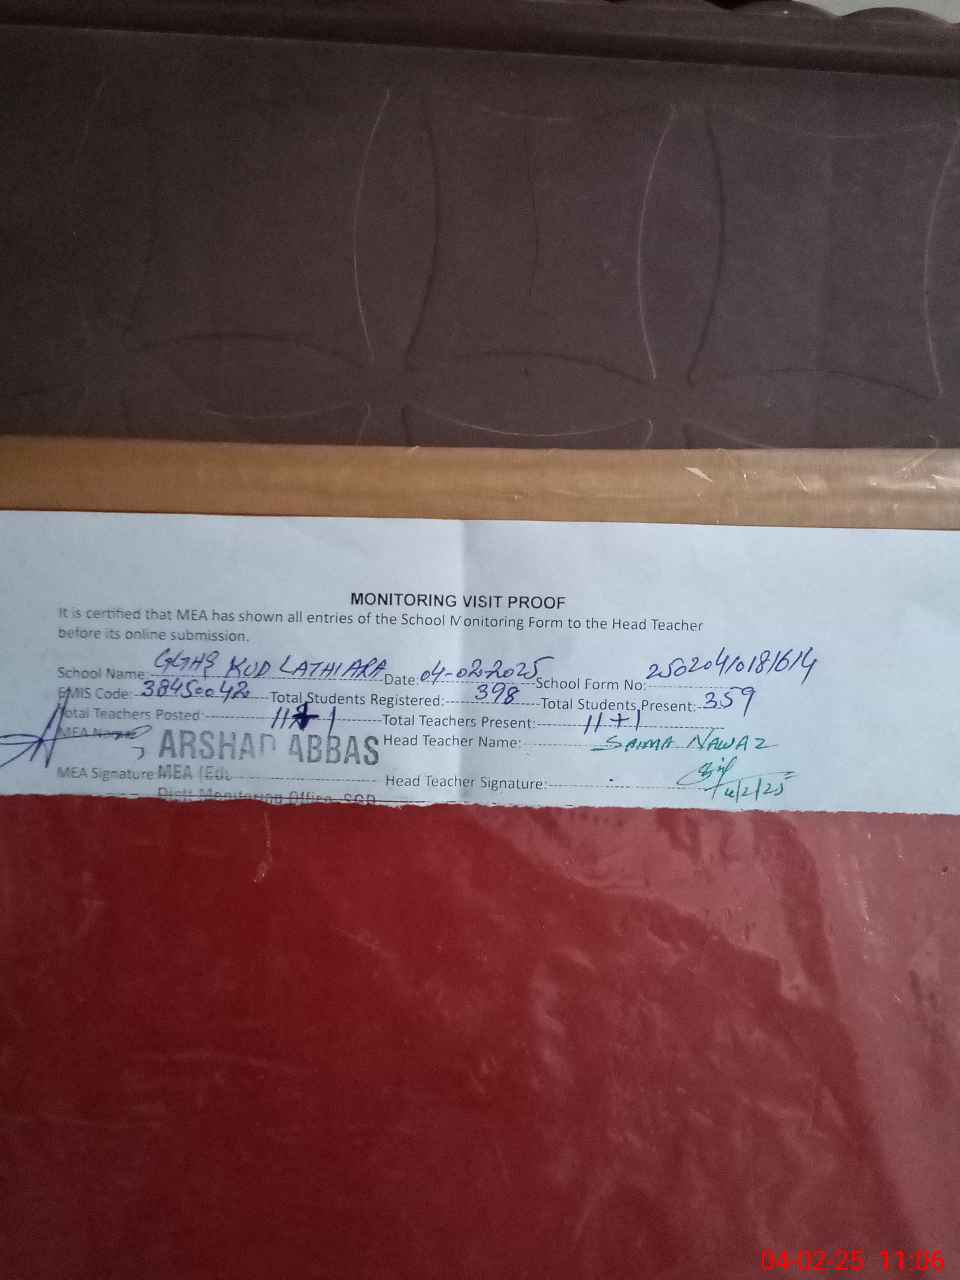 MONITORING VISIT PROOF
It is certified that MEA has shown all entries of the School Monitoring Form to the Head Teacher
before its online submission.
School Name: GGHS KUD LATHIARA Date: 04-02-2025 School Form No:
EMIS Code: Total Students Registered: 398 Total Students Present: 359
Total Teachers Posted: 11+1 Total Teachers Present: 11+1
MEA Name ARSHAD ABBAS Head Teacher Name: SAIMA NAWAZ
MEA Signature MEA (Edu Head Teacher Signature:
Distt Monitoring Office, SGD 4/2/25
04-02-25 11:06